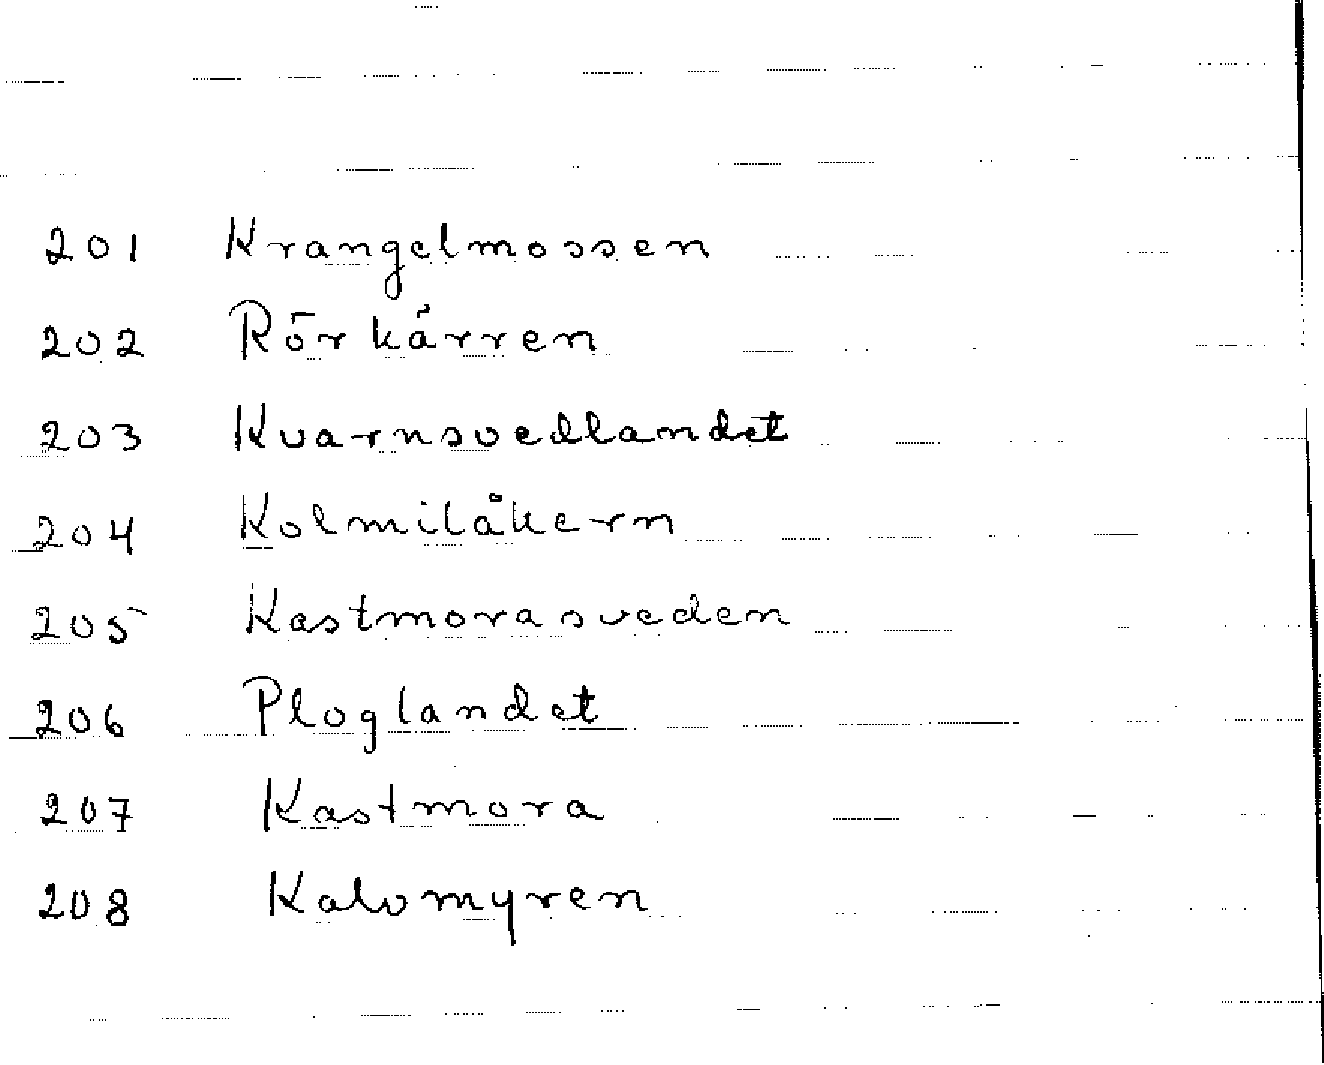 201 Krangelmossen
202 Rörkärren
203 Kvarnsvedlandet
204 Kolmilåkern
205 Kastmorasveden
206 Ploglandet
207 Kastmora
208 Kalvmyren